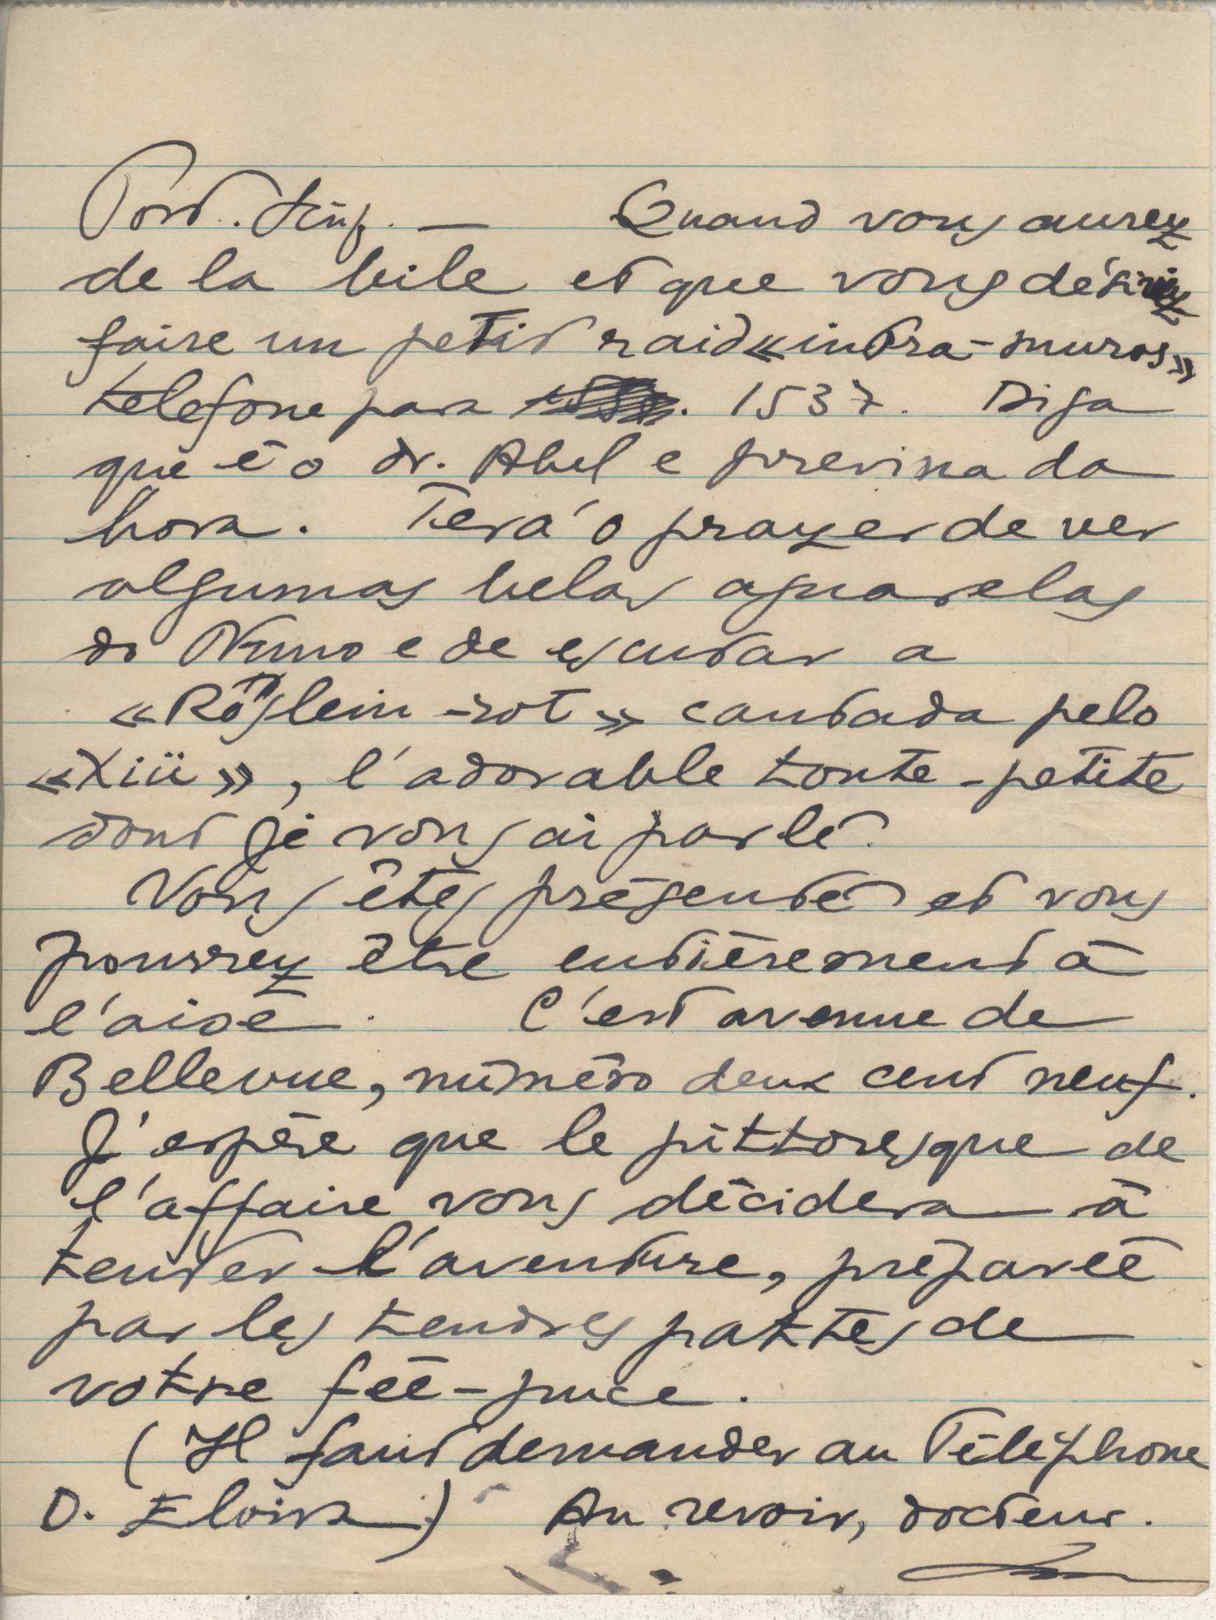 Post. Scrip. — Quand vous aurez
de la bile et que vous désiriez
faire un petit raid «intra-muros»
telefone para 1537. Diga
que é o dr. Abel e previna da
hora. Terá o prazer de ver
algumas belas aguarelas
do Nuno e de escutar a
«Röslein-rot» cantada pelo
«Xiü», l'adorable toute-petite
dont je vous ai parlé.
Vous êtes présenté et vous
pourrez être entièrement à
l'aise. C'est avenue de
Bellevue, numéro deux cent neuf.
J'espère que le pittoresque de
l'affaire vous décidera à
tenter l'aventure, préparée
par les tendres pattes de
votre fée-puce.
(Il faut demander au Téléphone
D. Eloisa) Au revoir, docteur.